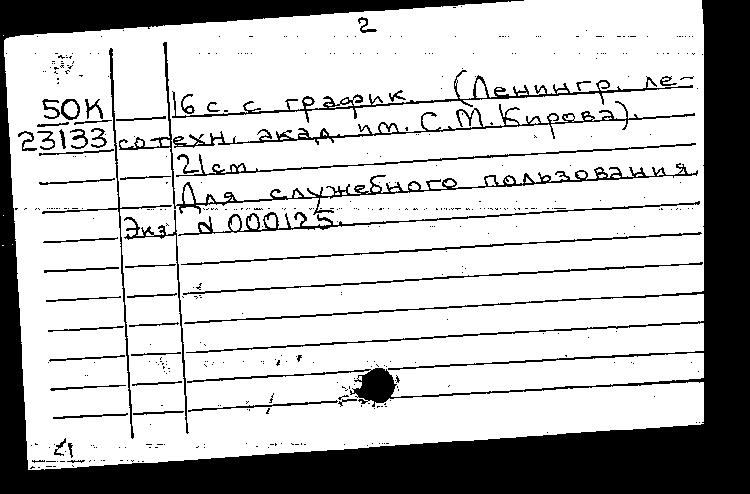 2
50К 16 с. с график. (Ленингр. ле-
23133 сотехн. акад. им. С.М. Кирова).
21 см.
Для служебного пользования.
Экз. N 000125.